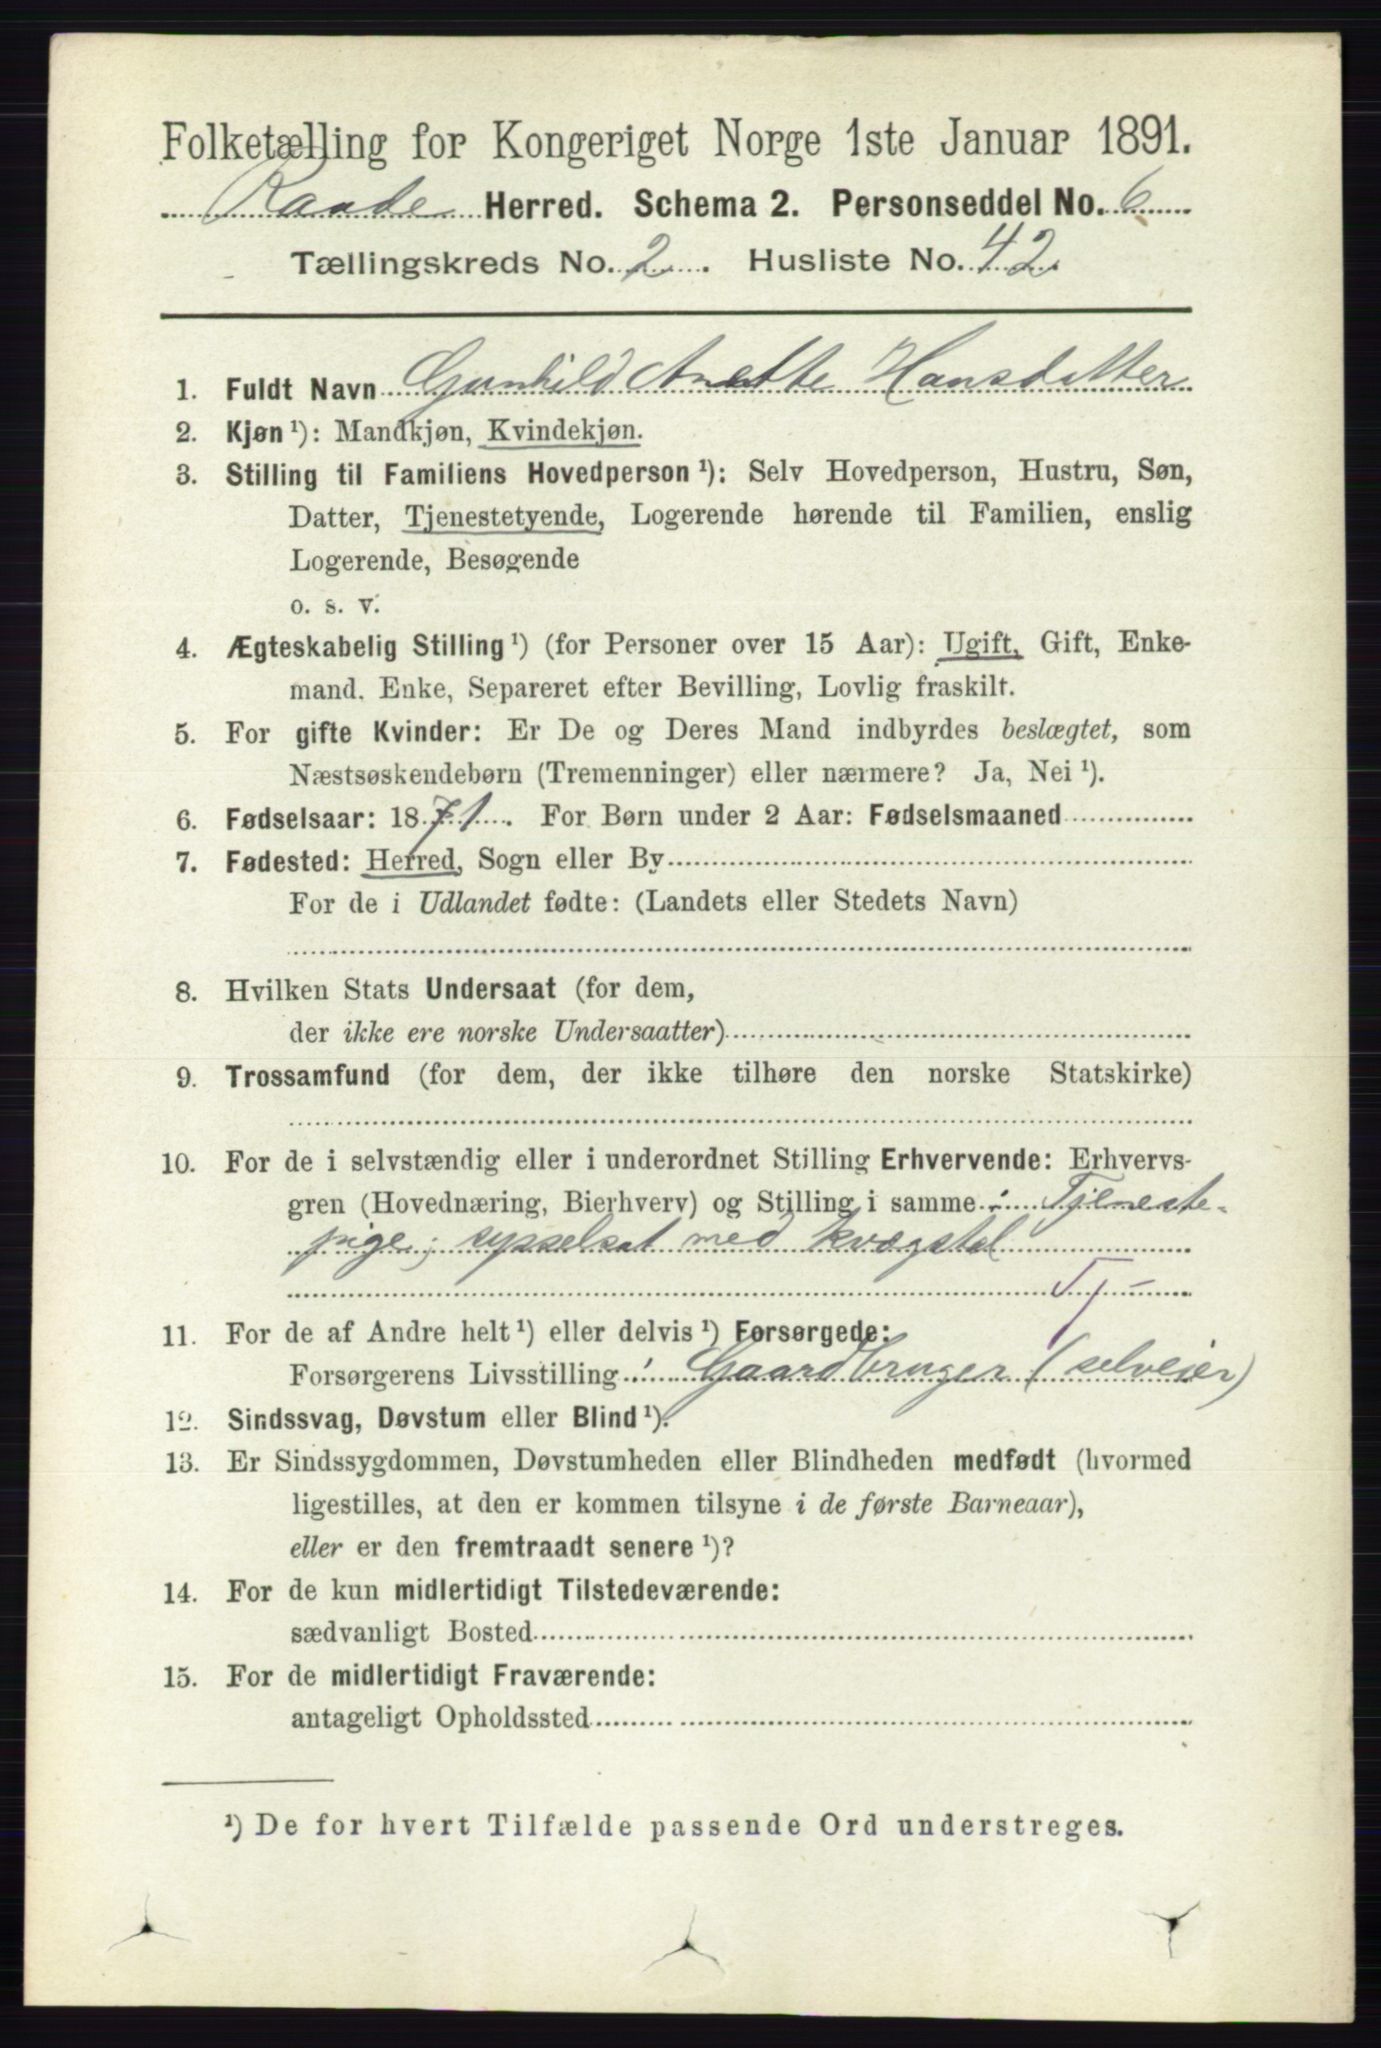 Folketælling for Kongeriget Norge 1ste Januar 1891.
Raade Herred. Schema 2. Personseddel No. 6
Tællingskreds No. 2. Husliste No. 42
1. Fuldt Navn Gunhild Anette Hansdatter
2. Kjøn¹): Mandkjøn, Kvindekjøn.
3. Stilling til Familiens Hovedperson¹): Selv Hovedperson, Hustru, Søn,
Datter, Tjenestetyende, Logerende hørende til Familien, enslig
Logerende, Besøgende
o. s. v.
4. Ægteskabelig Stilling¹) (for Personer over 15 Aar): Ugift, Gift, Enke-
mand, Enke, Separeret efter Bevilling, Lovlig fraskilt.
5. For gifte Kvinder: Er De og Deres Mand indbyrdes beslægtet, som
Næstsøskendebørn (Tremenninger) eller nærmere? Ja, Nei¹).
6. Fødselsaar: 1871. For Børn under 2 Aar: Fødselsmaaned
7. Fødested: Herred, Sogn eller By
For de i Udlandet fødte: (Landets eller Stedets Navn)
8. Hvilken Stats Undersaat (for dem,
der ikke ere norske Undersaatter)
9. Trossamfund (for dem, der ikke tilhøre den norske Statskirke)
10. For de i selvstændig eller i underordnet Stilling Erhvervende: Erhvervs-
gren (Hovednæring, Bierhverv) og Stilling i samme : Tjeneste-
pige; sysselsat med kvægstel
Tj -
11. For de af Andre helt¹) eller delvis¹) Forsørgede:
Forsørgerens Livsstilling : Gaardbruger (selveier)
12. Sindssvag, Døvstum eller Blind¹).
13. Er Sindssygdommen, Døvstumheden eller Blindheden medfødt (hvormed
ligestilles, at den er kommen tilsyne i de første Barneaar),
eller er den fremtraadt senere¹)?
14. For de kun midlertidigt Tilstedeværende:
sædvanligt Bosted
15. For de midlertidigt Fraværende:
antageligt Opholdssted
¹) De for hvert Tilfælde passende Ord understreges.